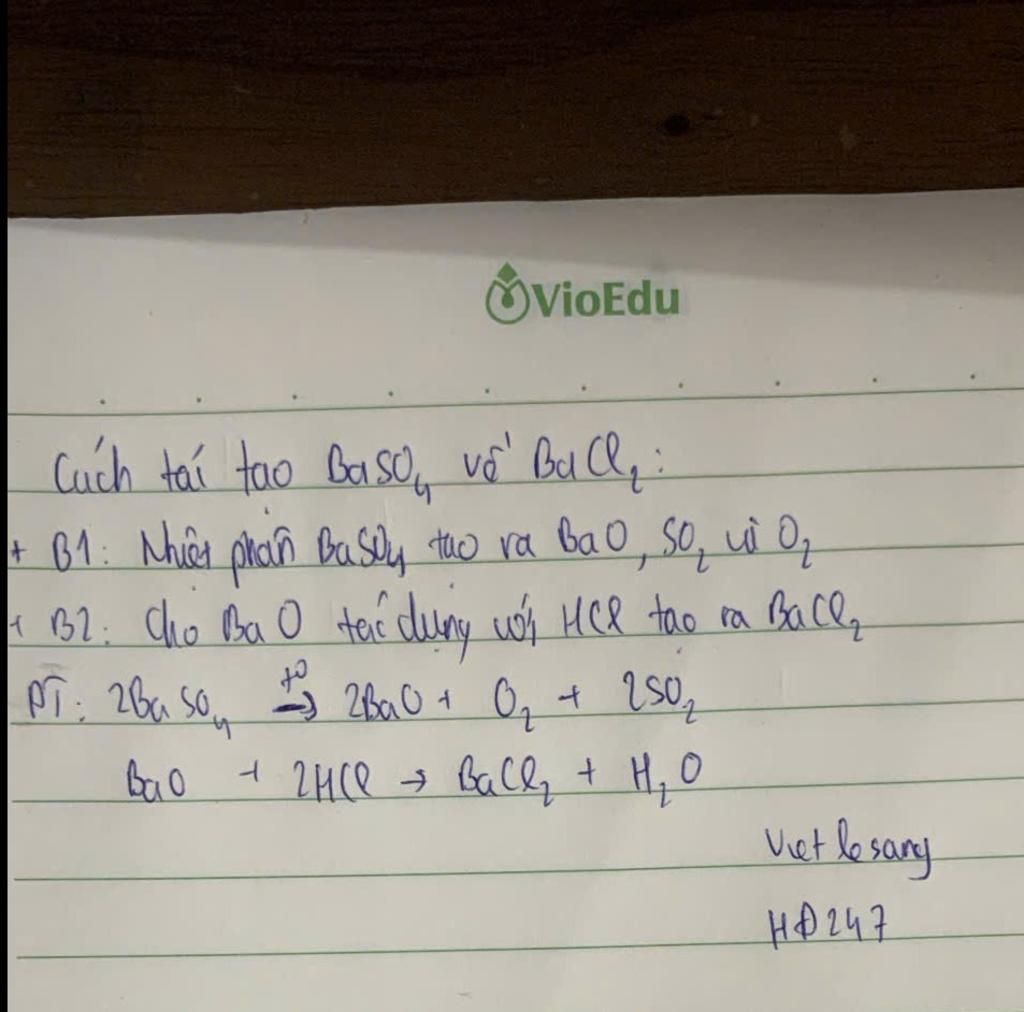 VioEdu
Cách tái tạo BaSO₄ về BaCl₂:
+ B1: Nhiệt phân BaSO₄ tạo ra BaO, SO₂ và O₂
+ B2: Cho BaO tác dụng với HCl tạo ra BaCl₂
PT: 2BaSO₄ →(t⁰) 2BaO + O₂ + 2SO₂
BaO + 2HCl → BaCl₂ + H₂O
Viet le sang
HĐ247